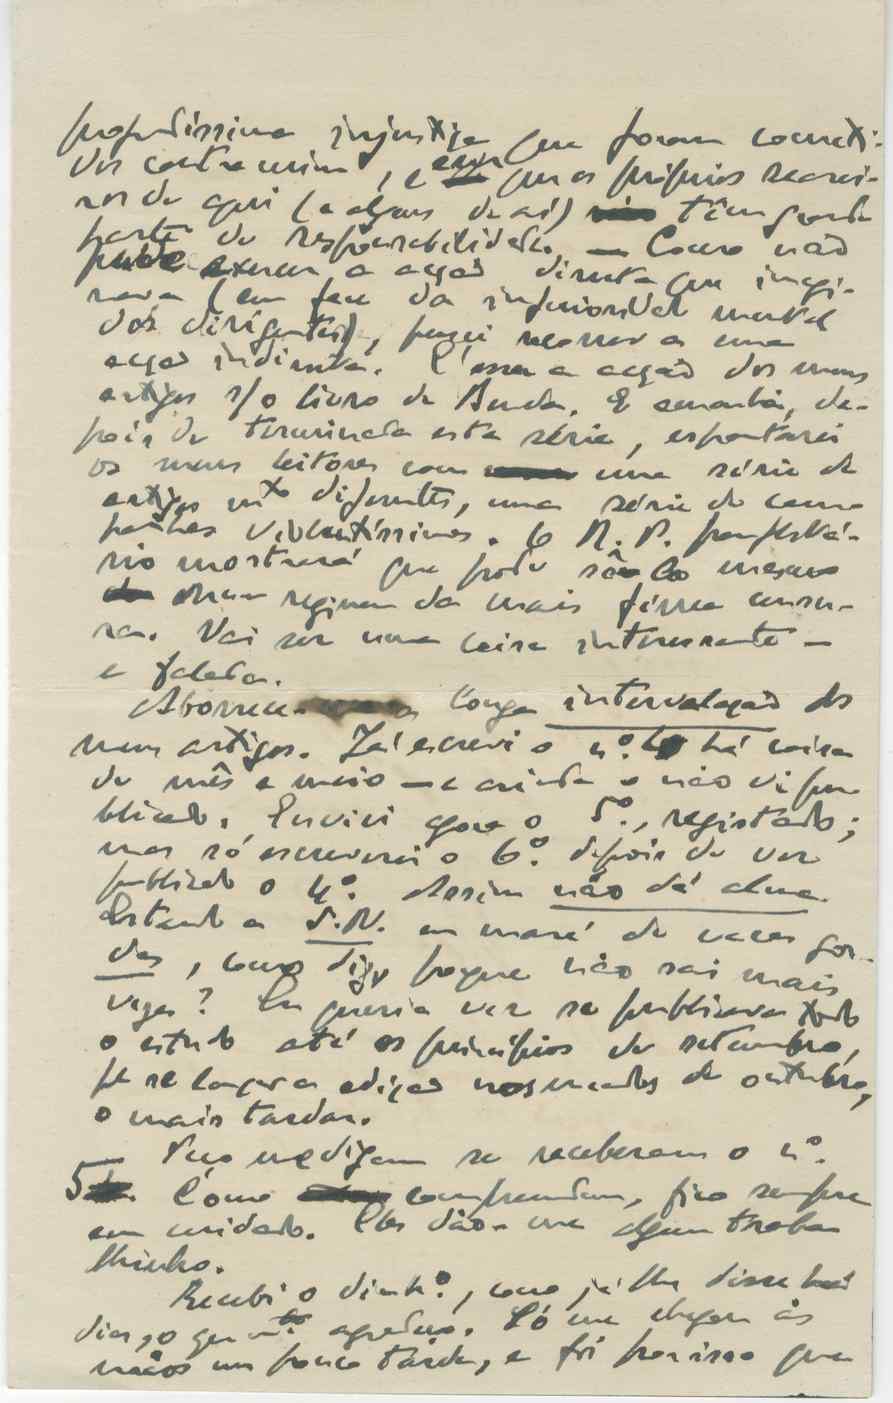 profundíssima injustiça que foram cometi-
dos contra mim, e que os próprios searei-
ros de aqui (e alguns de aí) têm grande
parte de responsabilidade. — Como não
pude exercer a acção directa que imagi-
nava (em face da inferioridade mental
dos dirigentes), pensei recorrer a uma
acção indirecta. É essa a acção dos meus
artigos s/ o livro de Benda. E amanhã, de-
pois de terminada esta série, espantarei
os meus leitores com uma série de
artigos mto diferentes, uma série de cam-
panhas violentíssimas. O R. P. panfletá-
rio mostrará que pode sê-lo mesmo
num regimen da mais férrea censu-
ra. Vai ser uma coisa interessante —
e falada.
Aborrece- a longa intervalação dos
meus artigos. Já escrevi o nº. 4 há coisa
de mês e meio — e ainda o não vi pu-
blicado. Enviei agora o 5º., registado;
mas só escreverei o 6º. depois de ver
publicado o 4º. Assim não dá alma.
Estando a S.N. em maré de vacas gor-
das, como diz, porque não sai mais
vezes? Eu queria ver se publicava todo
o estudo até os princípios de setembro,
pa se lançar a edição nos meados de outubro,
o mais tardar.
— Peço me digam se receberam o nº.
5. Como compreendem, fico sempre
em cuidado. Eles dão-me algum traba-
lhinho.
Recebi o dinhº., como já lhe disse há
dias, o que mto agradeço. Só me chegou às
mãos um pouco tarde, e foi por isso que